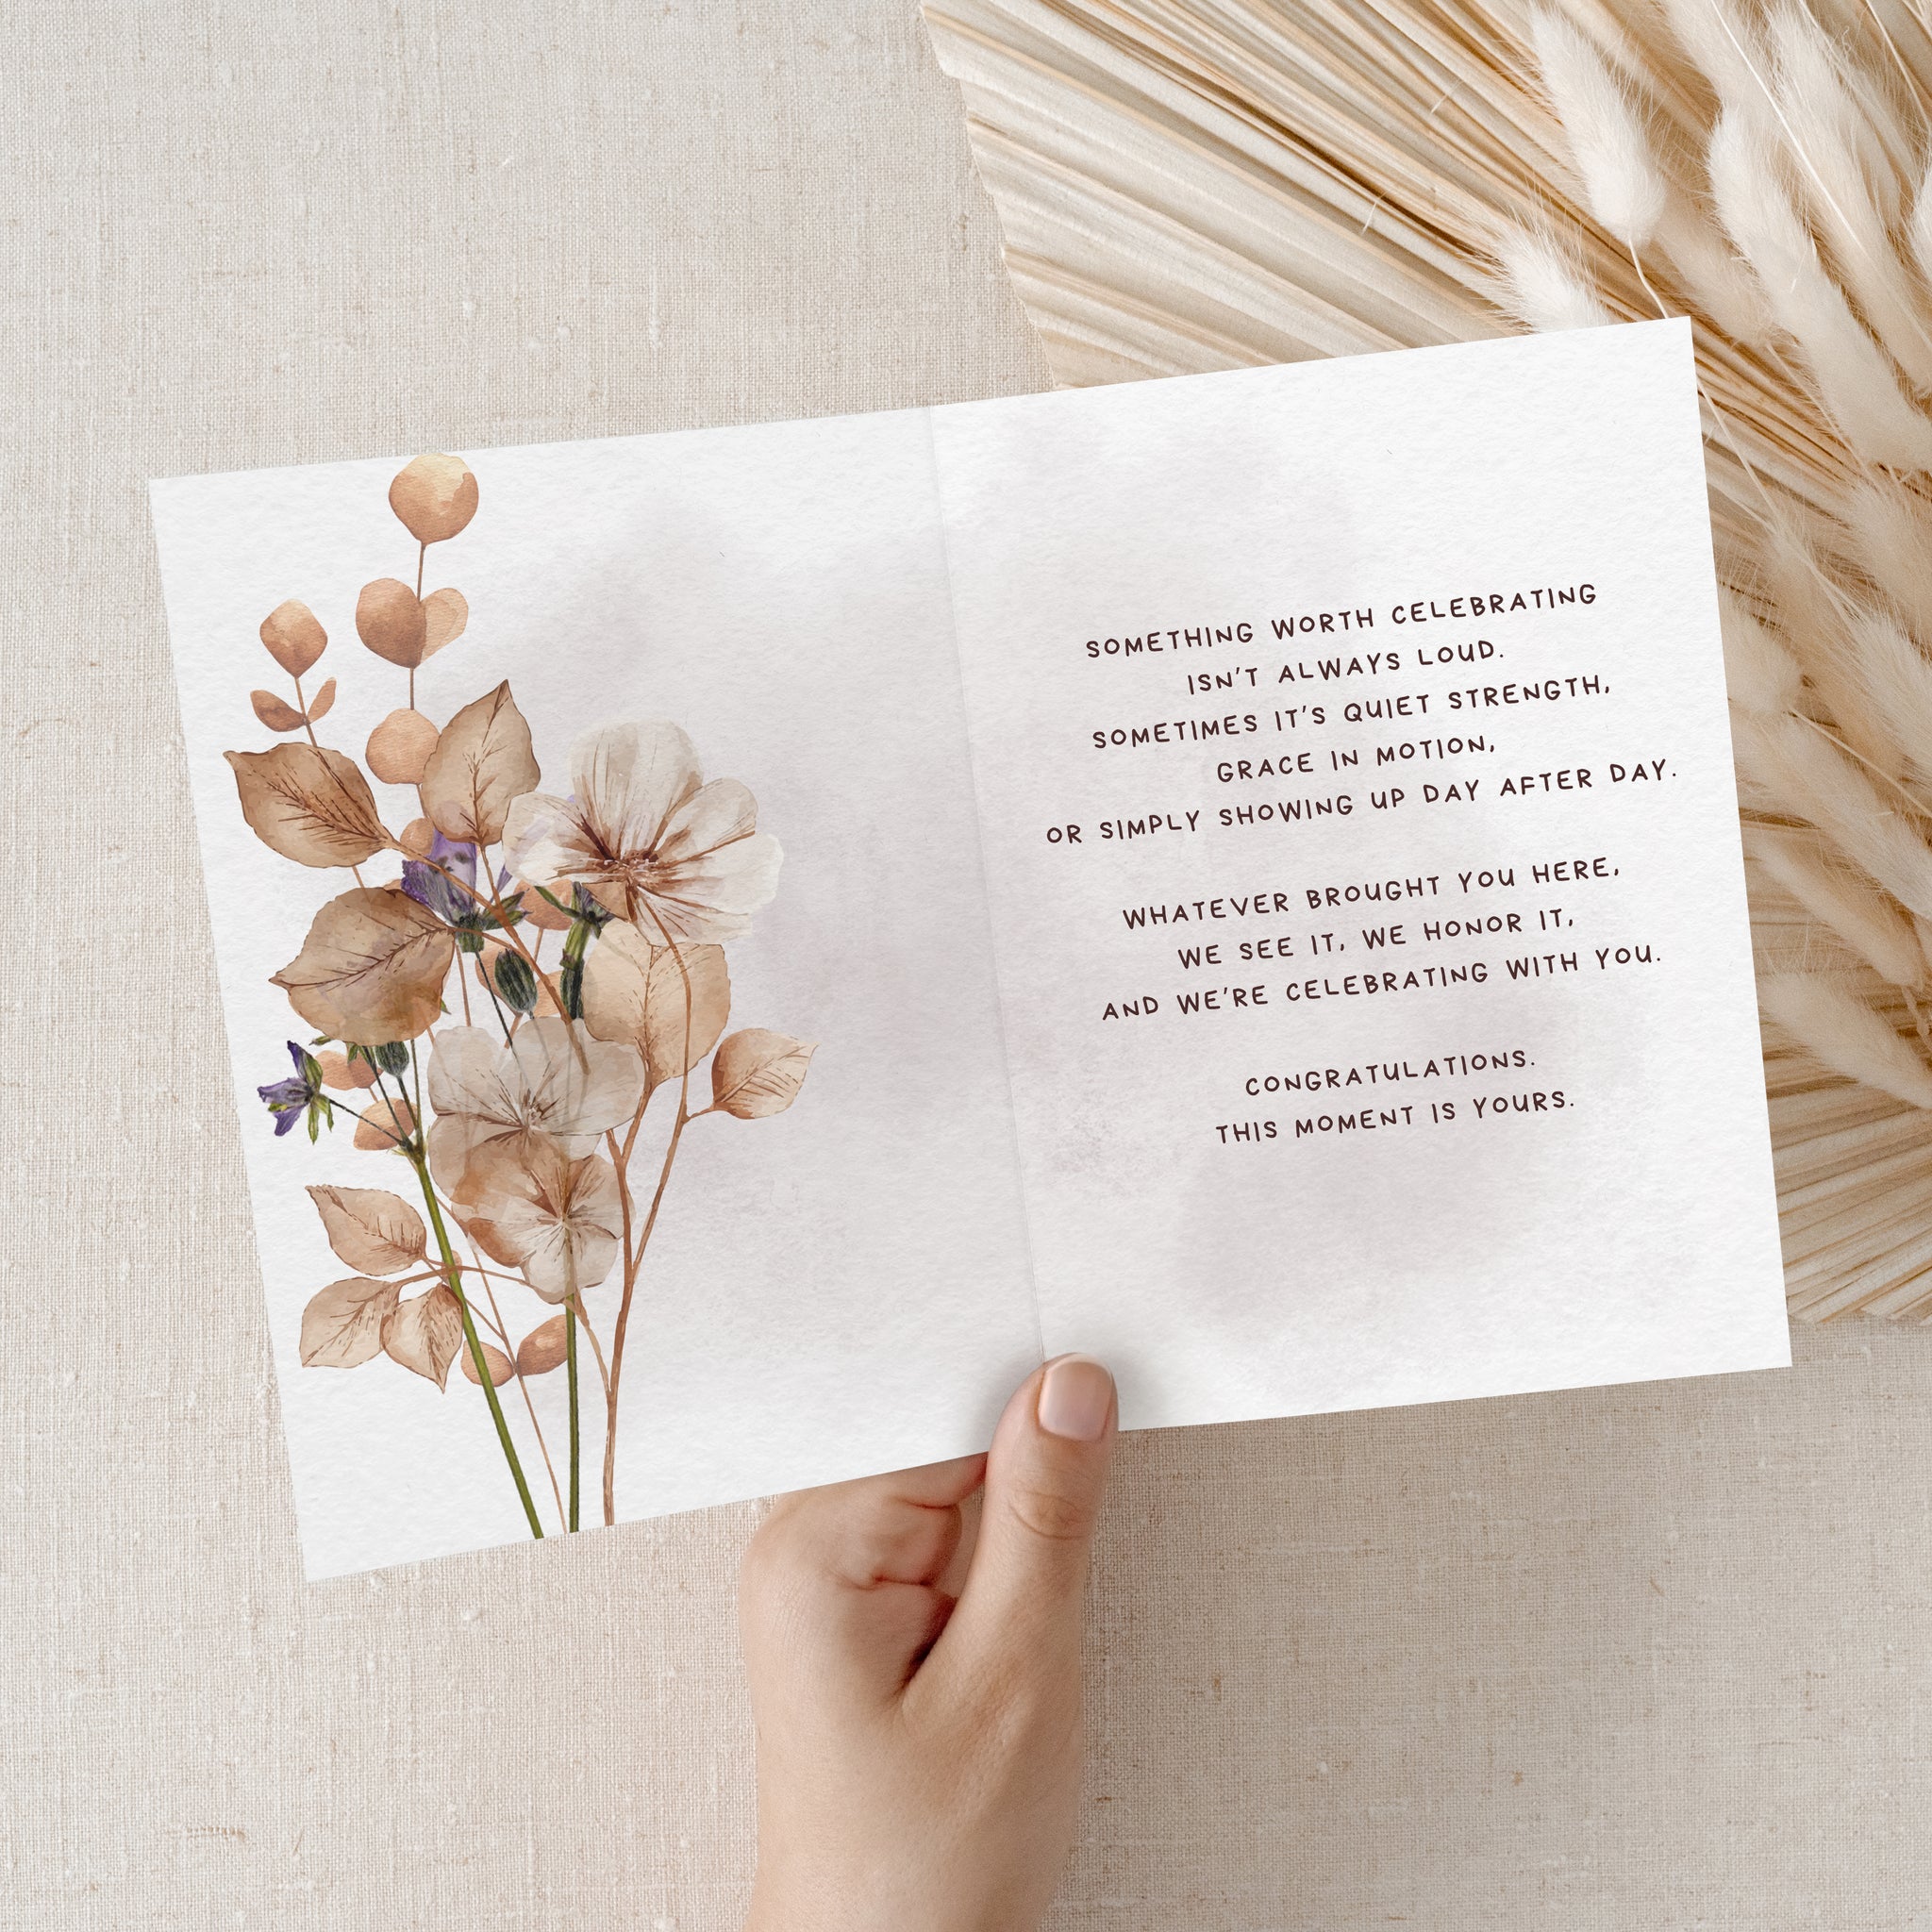 SOMETHING WORTH CELEBRATING
ISN'T ALWAYS LOUD.
SOMETIMES IT'S QUIET STRENGTH,
GRACE IN MOTION,
OR SIMPLY SHOWING UP DAY AFTER DAY.
WHATEVER BROUGHT YOU HERE,
WE SEE IT, WE HONOR IT,
AND WE'RE CELEBRATING WITH YOU.
CONGRATULATIONS.
THIS MOMENT IS YOURS.